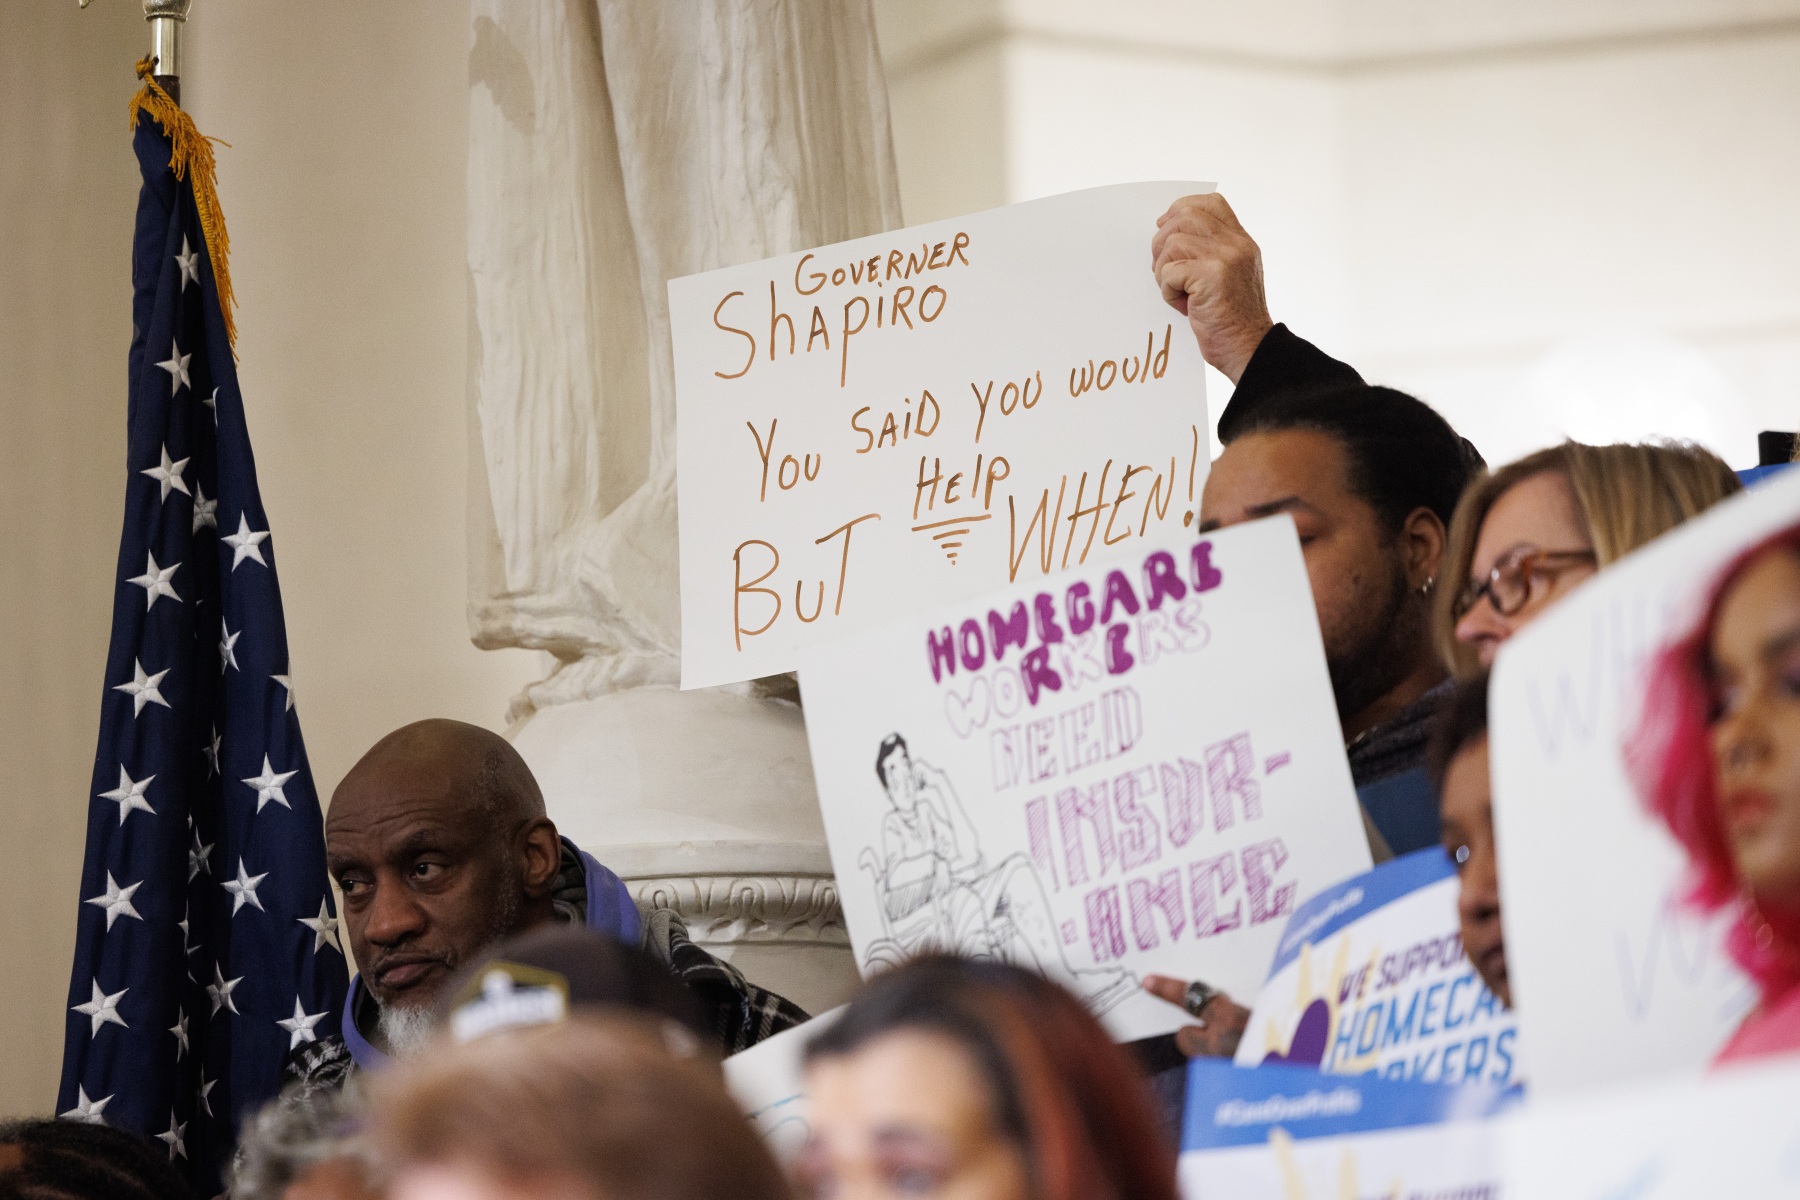 GOVERNER
ShAPiRO
You SAiD YOU would
HelP
BuT WHEN!
HOMECARE
WORKERS
NEED
INSUR-
-ANCE
WE SUPPOR
HOMECA
RKERS
#CareOverProfits